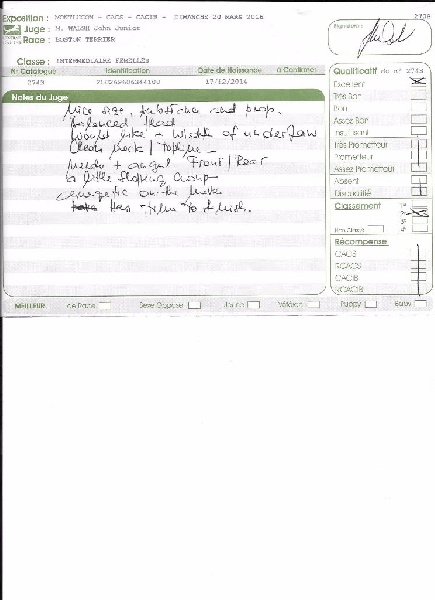 Exposition : MONTLUCON - CACS - CACIB - DIMANCHE 20 MARS 2016
Juge : M. WALSH John Junior
Race : BOSTON TERRIER
Classe : INTERMEDIAIRE FEMELLES
N° Catalogue Identification Date de Naissance à Confirmer
2743 17/12/2014
Notes du Juge
Nice size, substance and prop.
Balanced head
Would like + width of underjaw
Clean neck / topline -
angul Front / Rear
a little sloping croup
energetic on the move
Has time to finish.
MEILLEUR de Race Sexe Opposé Jeune Vétéran Puppy Baby
Signature :
Qualificatif du n° 2743
Excellent
Très Bon
Bon
Assez Bon
Insuffisant
Très Prometteur
Prometteur
Assez Prometteur
Absent
Disqualifié
Classement
Non Classé
Récompense
CACS
RCACS
CACIB
RCACIB